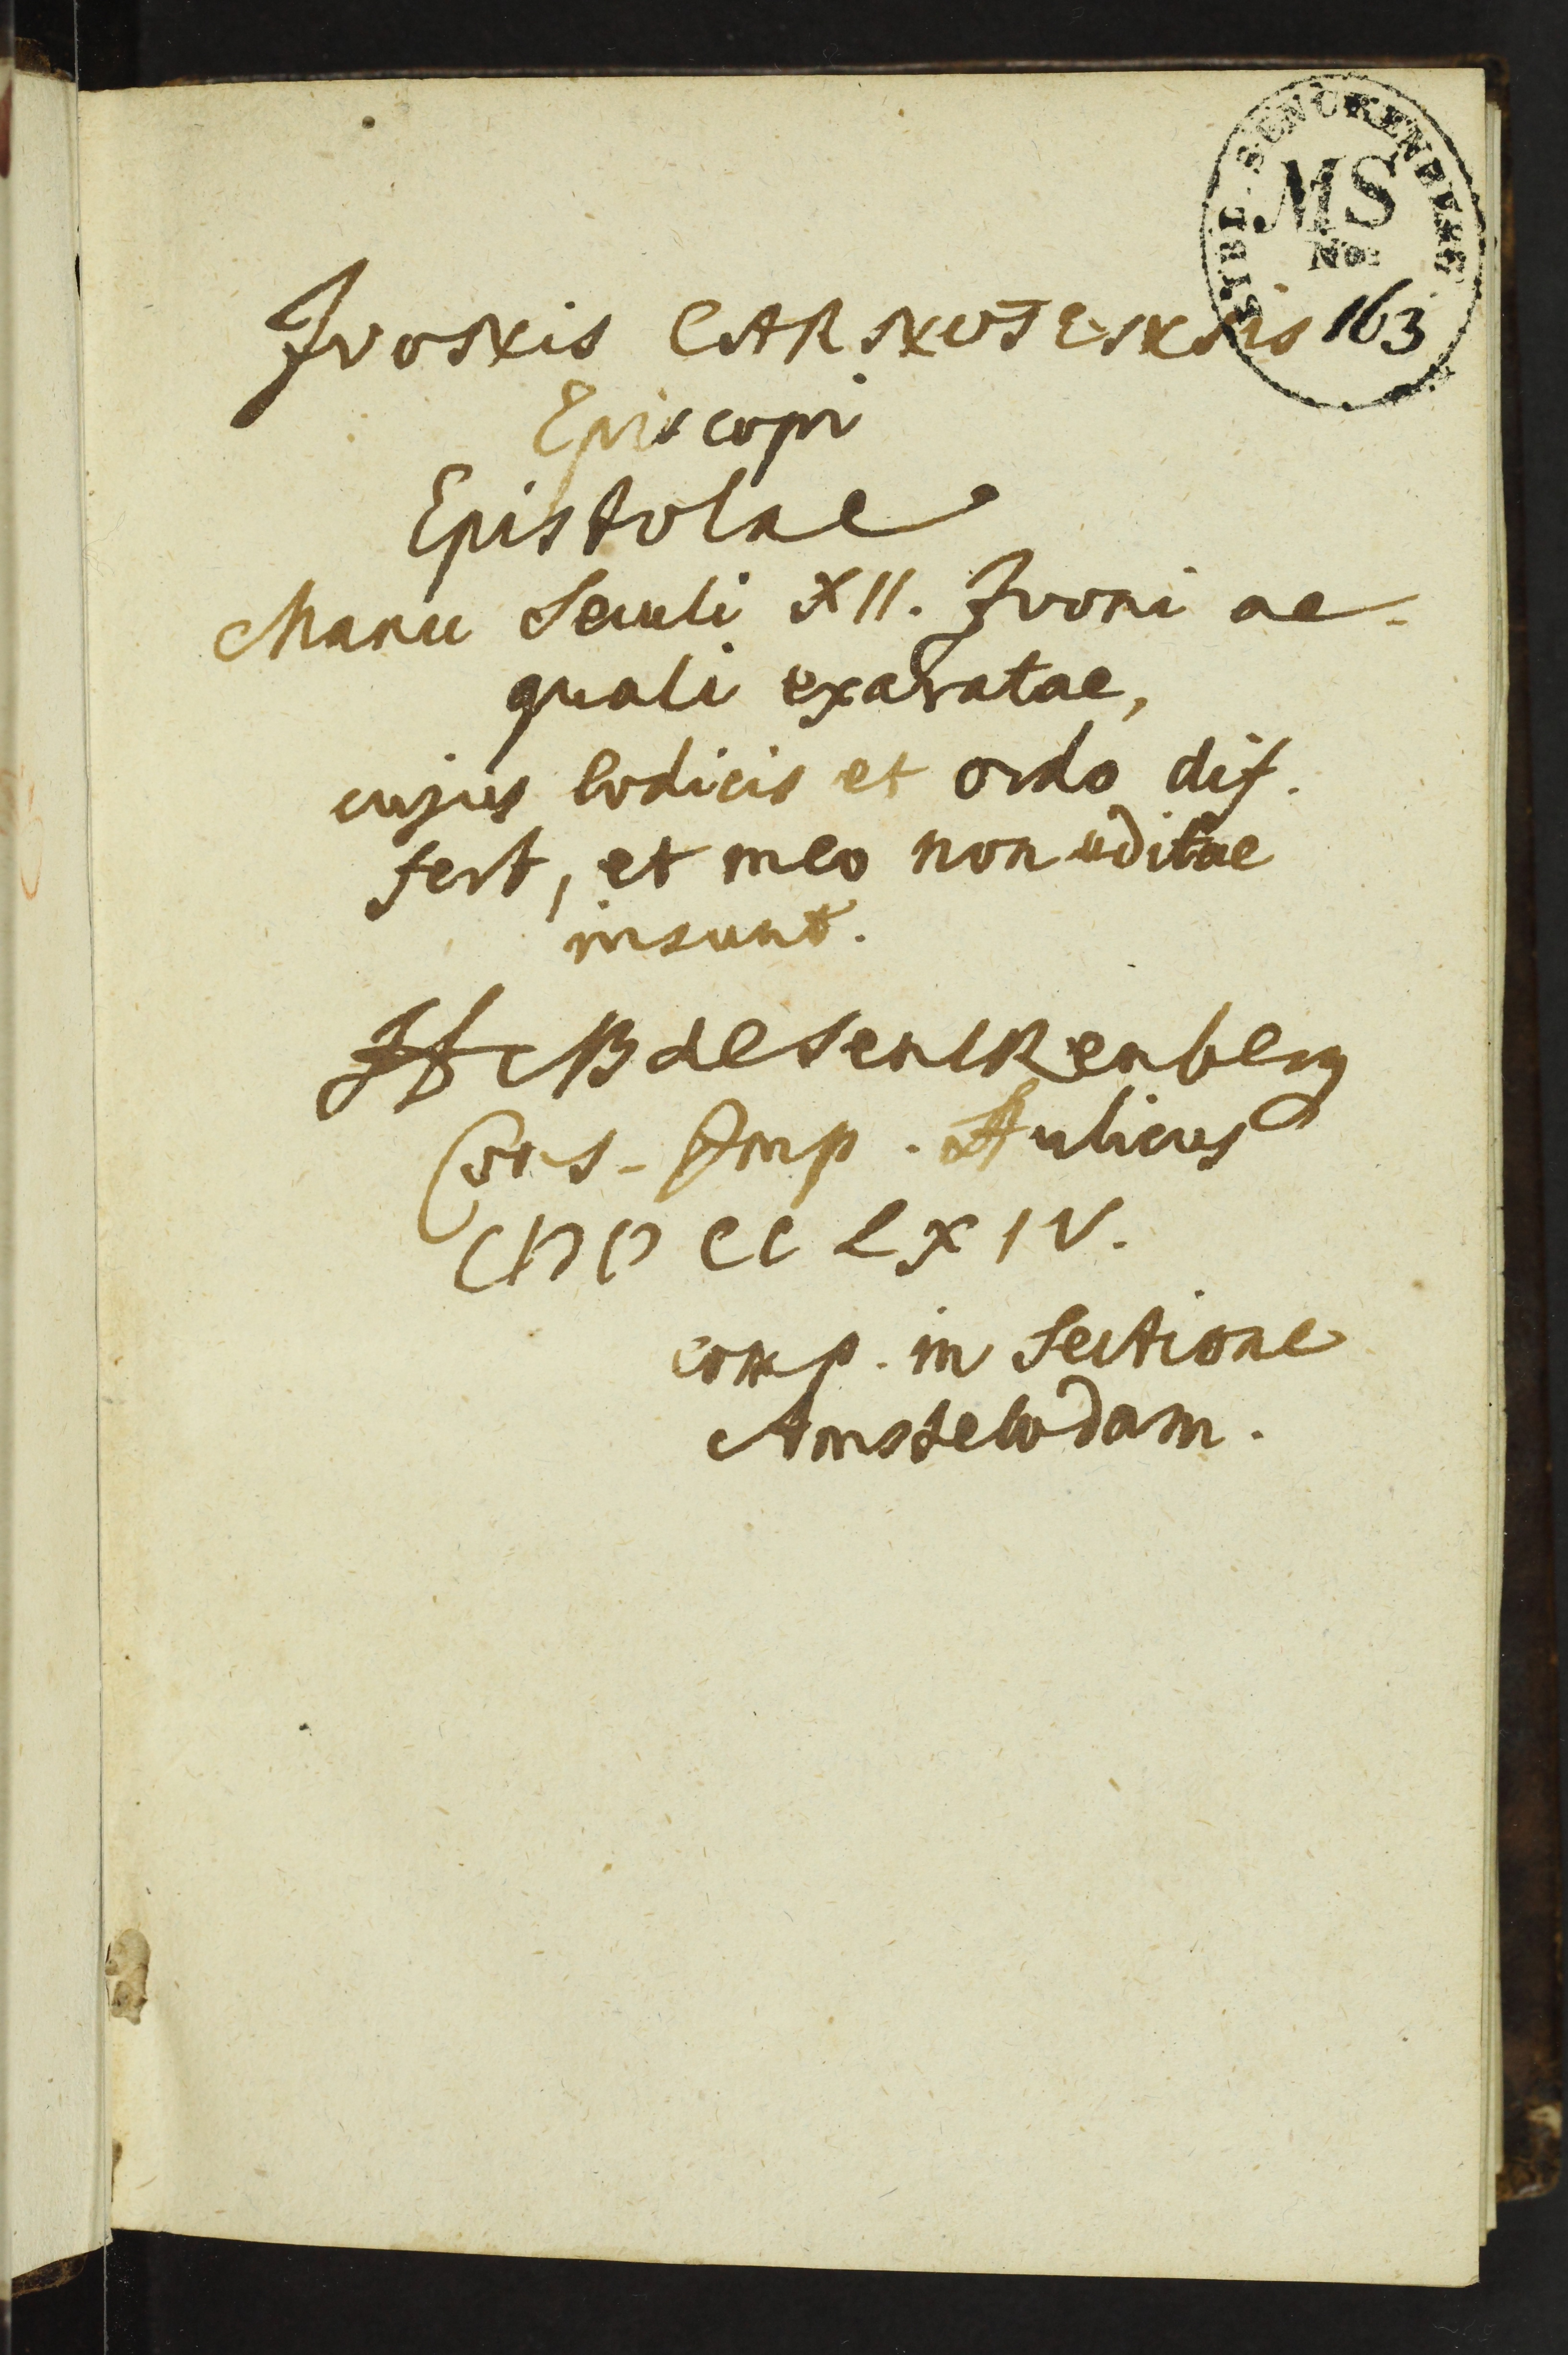 BIBL. SENCKENBERG
MS
No:
163
Ivonis CARNOTENSIS
Episcopi
Epistolae
Manu Seculi XII. Ivoni ae-
quali exaratae,
cujus Codicis et ordo dif-
fert, et in eo non editae
insunt.
HCB de Senckenberg
Cons. Imp. Aulicus
CIƆIƆCCLXIV.
comp. in Sectione
Amstelodam.